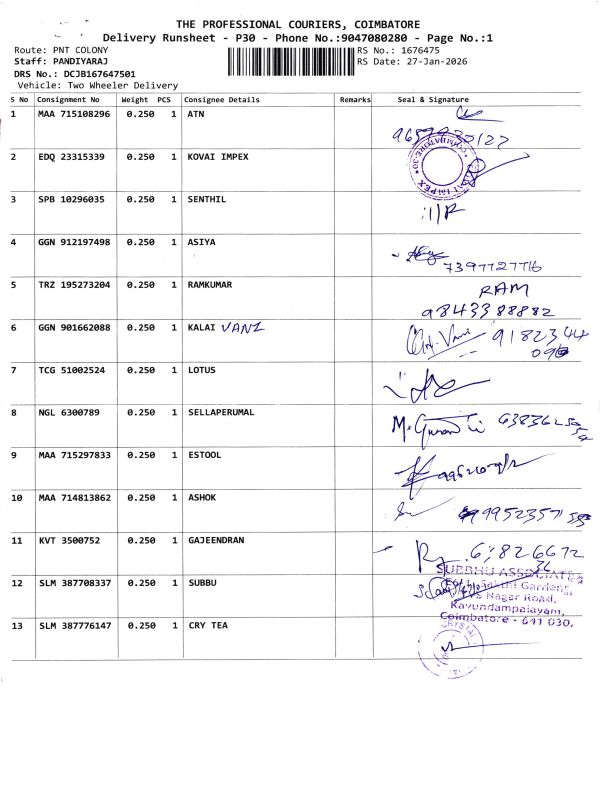 THE PROFESSIONAL COURIERS, COIMBATORE
Delivery Runsheet - P30 - Phone No.:9047080280 - Page No.:1
Route: PNT COLONY
Staff: PANDIYARAJ
DRS No.: DCJB167647501
Vehicle: Two Wheeler Delivery
RS No.: 1676475
RS Date: 27-Jan-2026
S No Consignment No Weight PCS Consignee Details Remarks Seal & Signature
1 MAA 715108296 0.250 1 ATN
2 EDQ 23315339 0.250 1 KOVAI IMPEX
3 SPB 10296035 0.250 1 SENTHIL
4 GGN 912197498 0.250 1 ASIYA
7397727716
5 TRZ 195273204 0.250 1 RAMKUMAR RAM
9843388882
6 GGN 901662088 0.250 1 KALAI VANI 9182344
7 TCG 51002524 0.250 1 LOTUS
8 NGL 6300789 0.250 1 SELLAPERUMAL
9 MAA 715297833 0.250 1 ESTOOL
10 MAA 714813862 0.250 1 ASHOK
11 KVT 3500752 0.250 1 GAJEENDRAN
SUBBHU ASSOCIATES
12 SLM 387708337 0.250 1 SUBBU
Gardens,
Nagar Road,
Kavundampalayam,
Coimbatore - 641 030.
13 SLM 387776147 0.250 1 CRY TEA